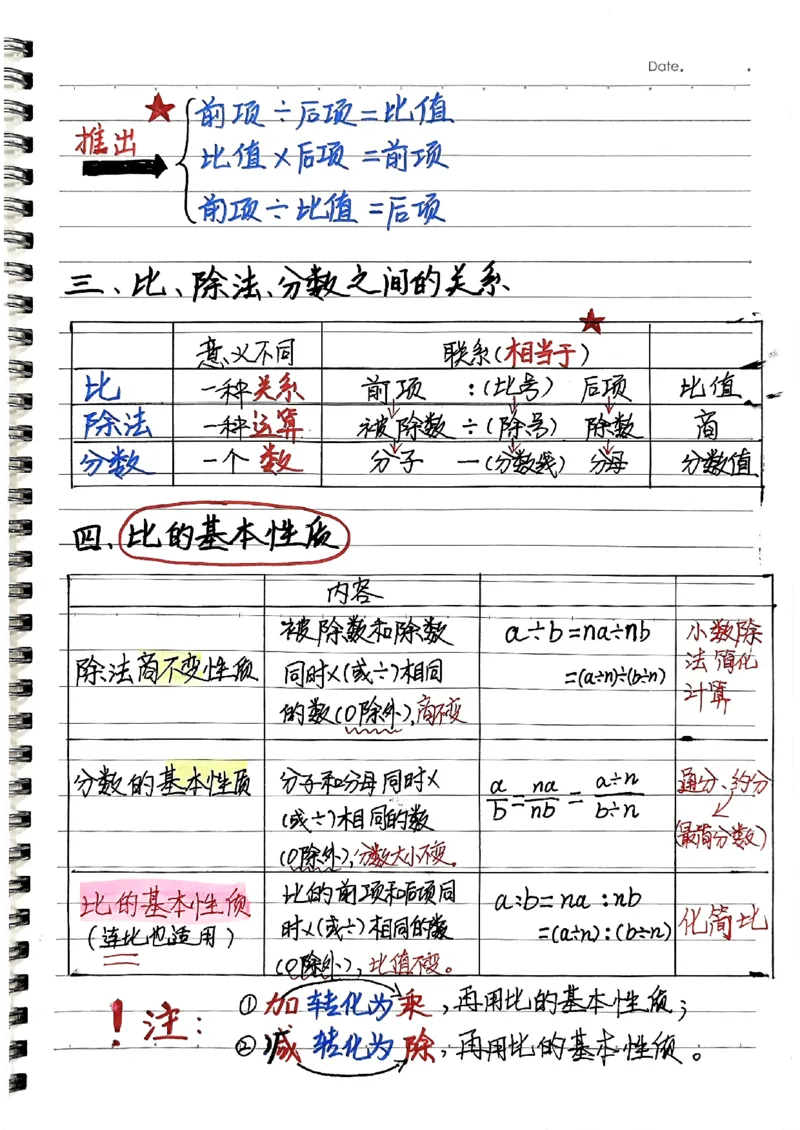 Date.
前项÷后项=比值
推出
比值×后项=前项
前项÷比值=后项
三、比、除法、分数之间的关系
意义不同 联系(相当于)
比 一种关系 前项 :(比号) 后项 比值
除法 一种运算 被除数 ÷(除号) 除数 商
分数 一个数 分子 —(分数线) 分母 分数值
四、比的基本性质
内容
除法商不变性质
被除数和除数
同时×(或÷)相同
的数(0除外),商不变
a÷b=na÷nb
=(a÷n)÷(b÷n)
小数除
法简化
计算
分数的基本性质
分子和分母同时×
(或÷)相同的数
(0除外),分数大小不变。
a/b=na/nb=a÷n/b÷n
通分、约分
(最简分数)
比的基本性质
(连比也适用)
比的前项和后项同
时×(或÷)相同的数
(0除外),比值不变。
a:b=na:nb
=(a÷n):(b÷n)
化简比
!注:
①加转化为乘,再用比的基本性质;
②减转化为除,再用比的基本性质。